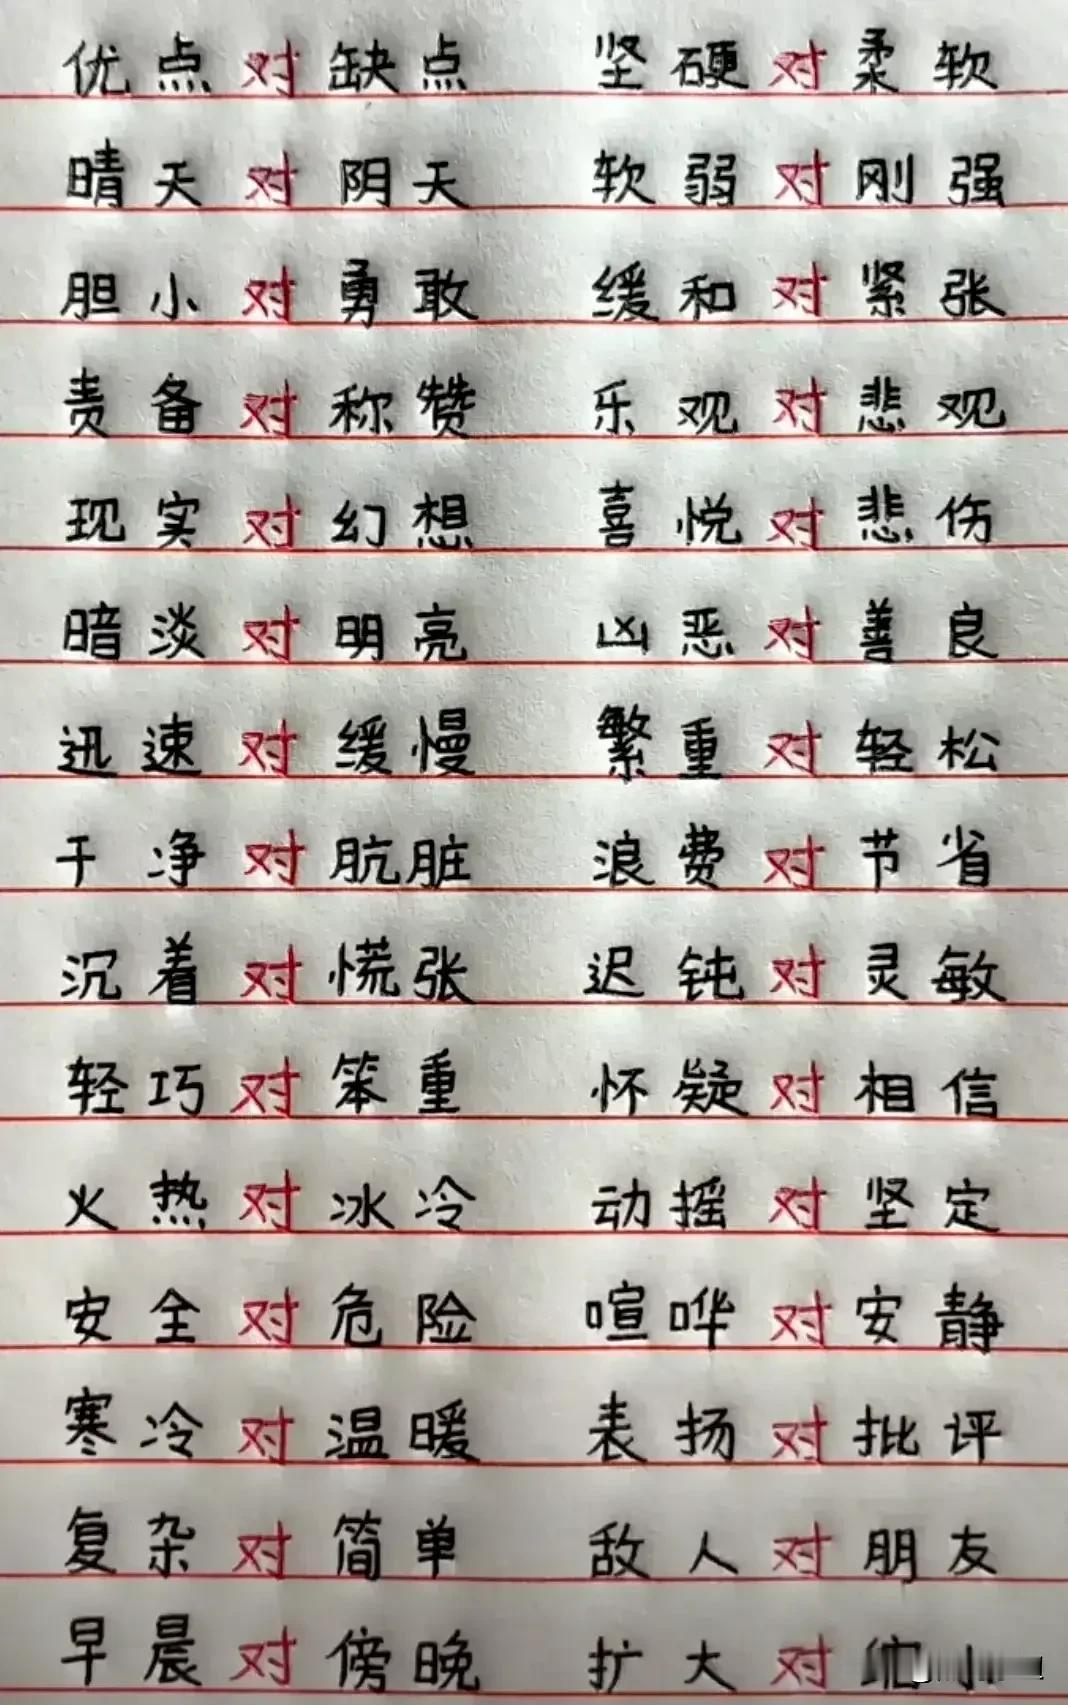 优点对缺点 坚硬对柔软
晴天对阴天 软弱对刚强
胆小对勇敢 缓和对紧张
责备对称赞 乐观对悲观
现实对幻想 喜悦对悲伤
暗淡对明亮 凶恶对善良
迅速对缓慢 繁重对轻松
干净对肮脏 浪费对节省
沉着对慌张 迟钝对灵敏
轻巧对笨重 怀疑对相信
火热对冰冷 动摇对坚定
安全对危险 喧哗对安静
寒冷对温暖 表扬对批评
复杂对简单 敌人对朋友
早晨对傍晚 扩大对